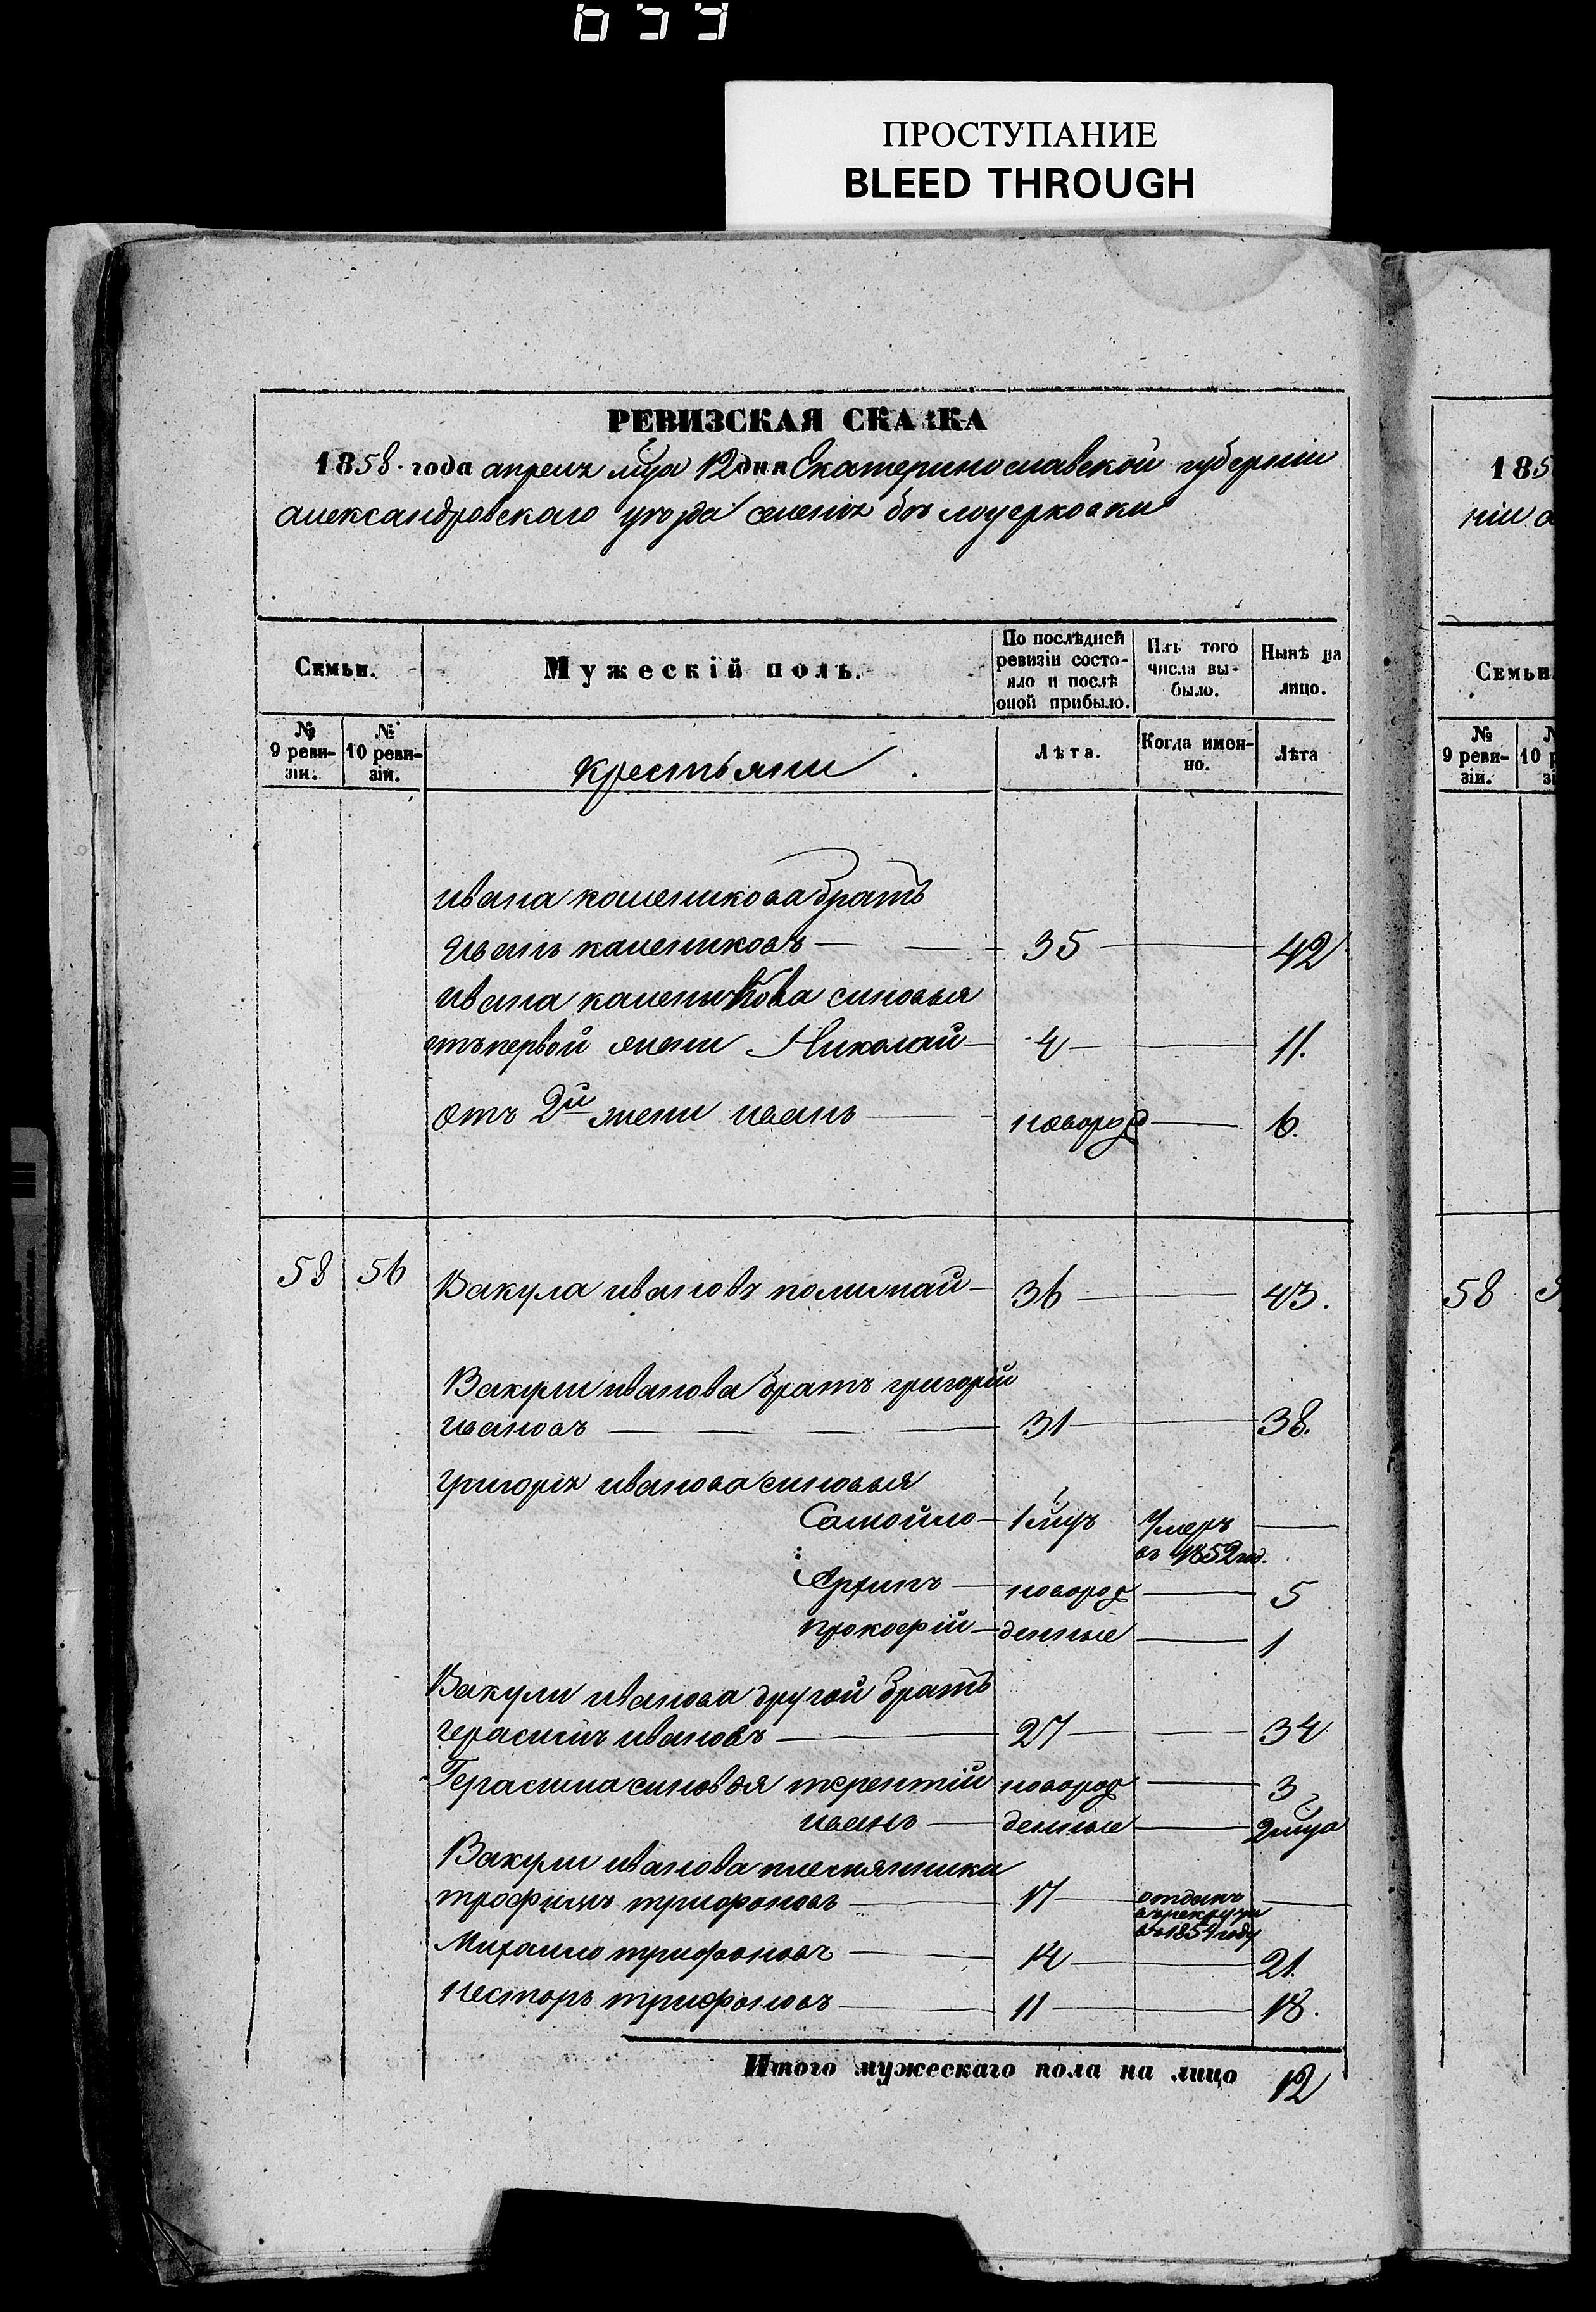 659
ПРОСТУПАНИЕ
BLEED THROUGH
РЕВИЗСКАЯ СКАЗКА
1858. года апреля мца 12 дня Екатеринославской губерніи
александровскаго уѣзда селенія бѣлоцерковки
Семьи.
Мужескій полъ.
По послѣдней ревизіи состояло и послѣ оной прибыло.
Изъ того числа выбыло.
Нынѣ на лицо.
№ 9 ревизіи.
№ 10 ревизіи.
Крестьяни
Лѣта.
Когда именно.
Лѣта
ивана братъ
иванъ 35 42
ивана синовья
отъ первой жени Николай 4 11.
отъ 2й жени иванъ новорож 6.
58 56 Вакула ивановъ 36 43.
Вакули иванова братъ григорій
ивановъ 31 38.
григорія иванова синовья
Самойло 1 мцъ Умеръ
въ 1852 год.
Архипъ новорож 5
прокофій денные 1
Вакули иванова другой братъ
герасимъ ивановъ 27 34
Герасима синовья терентій новорож 3
иванъ денные 2 мца
Вакули иванова племянники
трофимъ трифоновъ 17 отданъ
въ рекрути
въ 1854 году
Михайло трифоновъ 14 21.
Несторъ трифоновъ 11 18.
Итого мужескаго пола на лицо 12
185
ніи а
Семьи
№ 9 ревизіи.
58